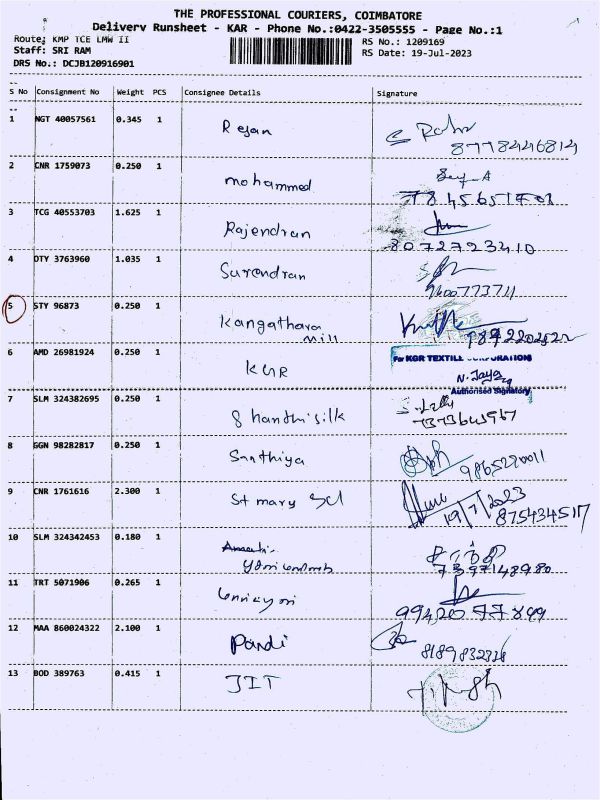 THE PROFESSIONAL COURIERS, COIMBATORE
Delivery Runsheet - KAR - Phone No.:0422-3505555 - Page No.:1
Route: KMP TCE LMW II
RS No.: 1209169
Staff: SRI RAM
RS Date: 19-Jul-2023
DRS No.: DCJB120916901
S No Consignment No Weight PCS Consignee Details Signature
1 NGT 40057561 0.345 1 Rejan
8778446814
2 CNR 1759073 0.250 1 mohammed
3 TCG 40553703 1.625 1 Rajendran
8072793410
4 OTY 3763960 1.035 1 Surendran
9600773711
5 STY 96873 0.250 1 Kangathara
mill
6 AMD 26981924 0.250 1 KGR
For KGR TEXTILE CORPORATION
N. Jaya
Authorised Signatory
7 SLM 324382695 0.250 1 Shanthi silk
8 GGN 98282817 0.250 1 Santhiya
9865220011
9 CNR 1761616 2.300 1 St mary
19/7/2023
875434517
10 SLM 324342453 0.180 1
7397148980
11 TRT 5071906 0.265 1
12 MAA 860024322 2.100 1 Pandi
13 BOD 389763 0.415 1 JIT